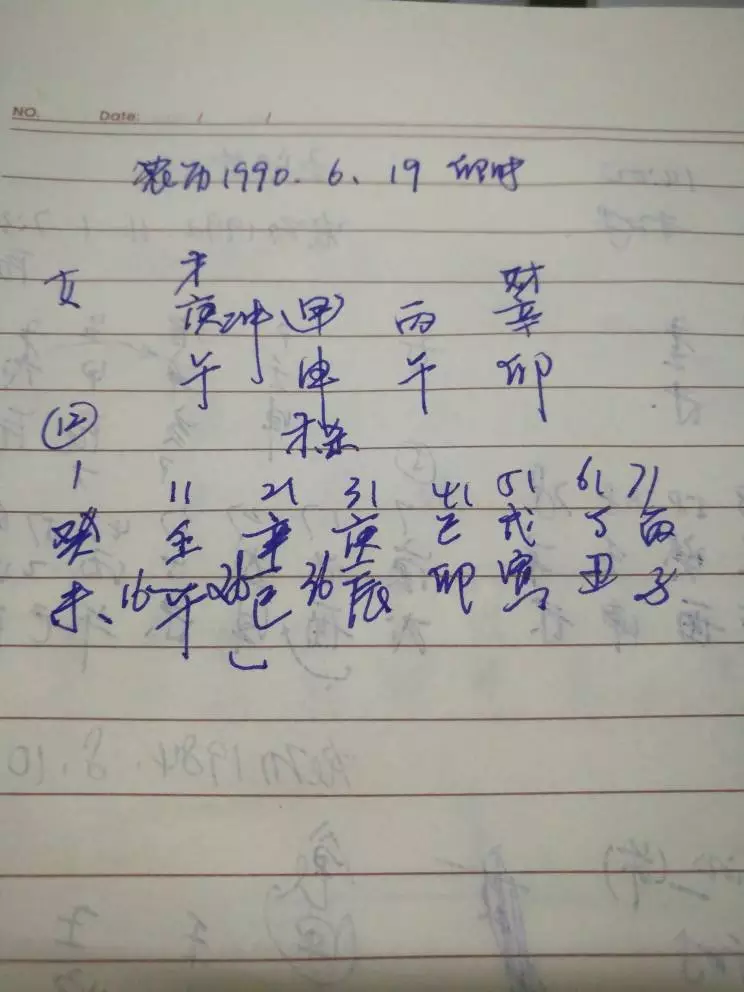 NO.    Date:    /    /
农历1990.6.19 卯时
才    财
女 庚 冲 (甲) 丙 辛
午 申 午 卯
⑫ 才 杀
1 11 21 31 41 51 61 71
癸 壬 辛 庚 己 戊 丁 丙
未、16 午 26 巳 36 辰 卯 寅 丑 子